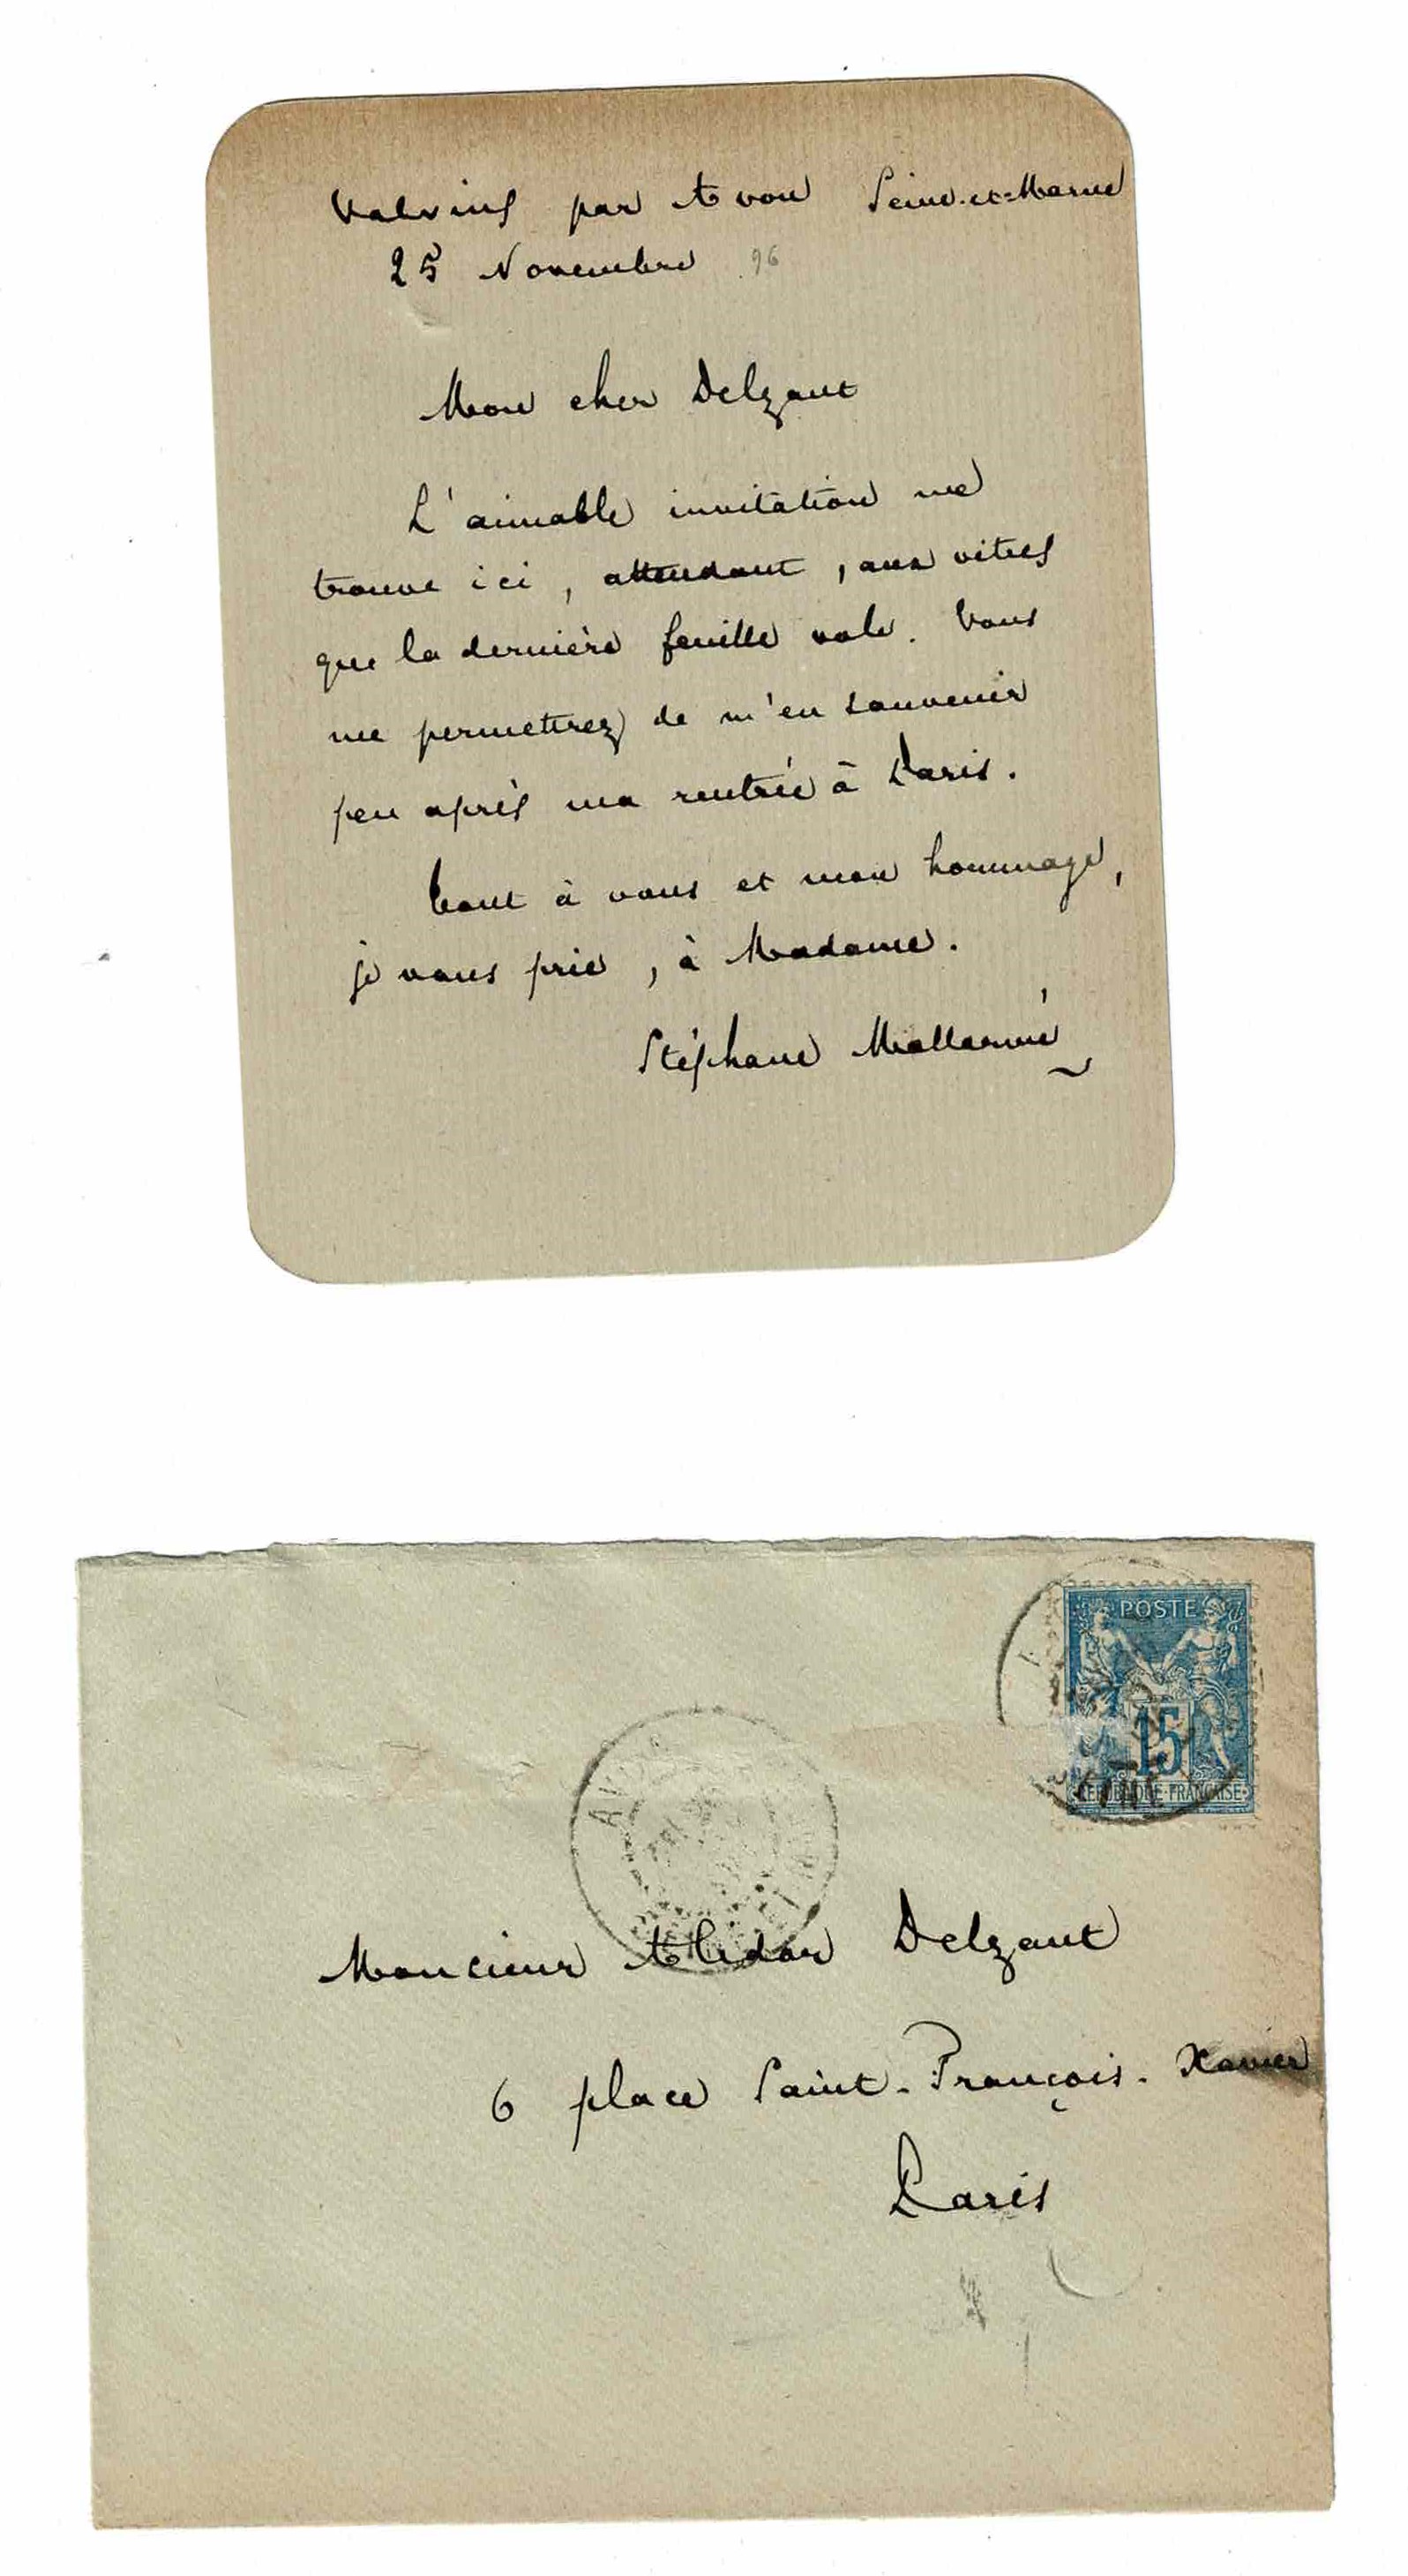 Valvins par Avon Seine-et-Marne
25 Novembre 96
Mon cher Delzant
L'aimable invitation me
trouve ici, attendant, aux vitres
que la dernière feuille vole. Vous
me permettrez de m'en souvenir
peu après ma rentrée à Paris.
Tout à vous et mon hommage,
je vous prie, à Madame.
Stéphane Mallarmé
POSTE
15
REPUBLIQUE FRANÇAISE
AVON
Monsieur Alidor Delzant
6 place Saint-François-Xavier
Paris